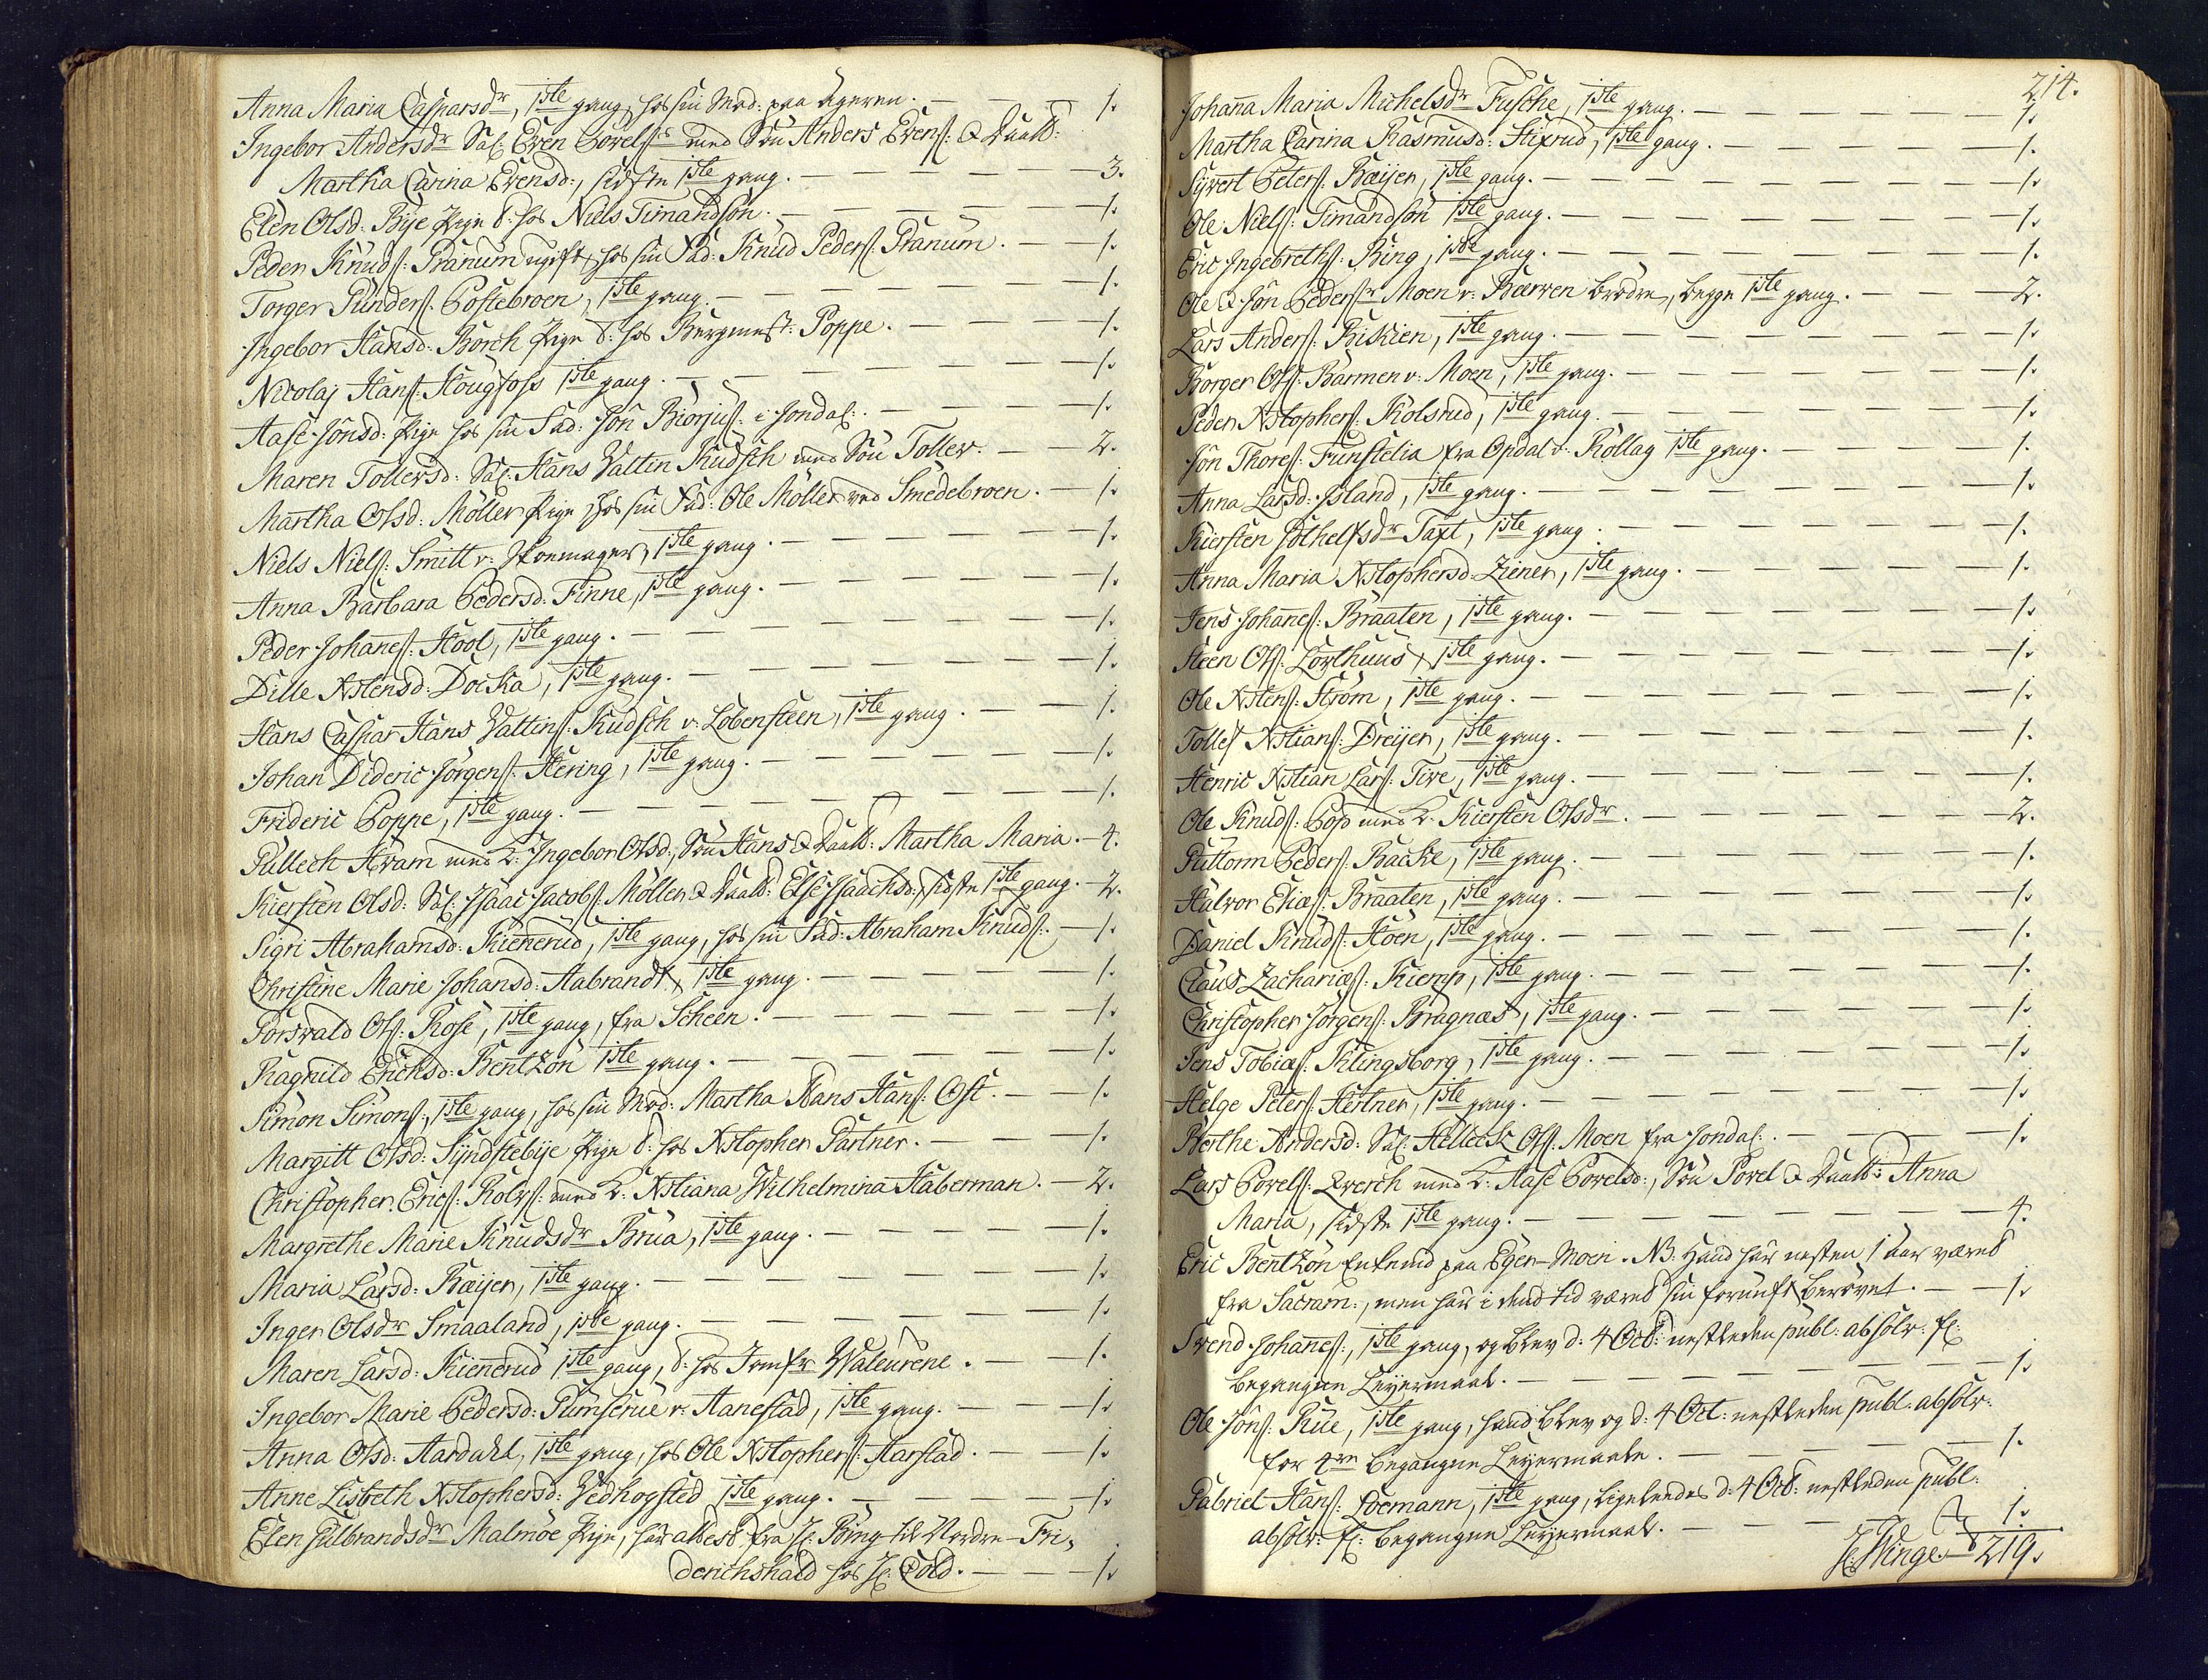 Anna Maria Casparsdr, 1ste gang, hos sin Mod: paa Ageren. — 1.
Ingebor Andersdr Sal: Even Povelss med Søn Anders Evens: & Daatt:
Martha Carina Evensd:, sidste 1ste gang. — 3.
Elen Olsd: Bye Pige d: hos Niels Timandsön. — 1.
Peder Knuds: Granum ugift, hos sin Fad: Knud Peders: Granum. — 1.
Torger Gunders: Postebroen, 1ste gang. — 1.
Ingebor Hansd: Borch Pige d: hos Burgemest: Poppe. — 1.
Nicolaj Hans: Hougfoss 1ste gang. — 1.
Aase Jönsd: Pige hos sin Fad: Jön Biorjus: i Jondal: — 1.
Maren Tollersd: Sal: Hans Valtin Kudsch med Søn Toller. — 2.
Martha Olsd: Möller Pige hos sin Fad: Ole Möller ved Smedebroen. — 1.
Niels Niels: Smitt v: Skomager, 1ste gang. — 1.
Anna Barbara Pedersd: Finne, 1ste gang. — 1.
Peder Johannes: Hool, 1ste gang. — 1.
Dille Xstensd: Docka, 1ste gang. — 1.
Hans Caspar Hans Valtins: Kudsch v: Lobensteen, 1ste gang. — 1.
Johan Dideric Jörgens: Hering, 1ste gang. — 1.
Frideric Poppe, 1ste gang. — 1.
Gullech Kram med K: Ingebor Olsd:, Søn Hans & Daatt: Martha Maria. — 4.
Kiersten Olsd: Sal: Isaac Jacobs: Möller & Daatt: Else Isaachsd:, sidste 1ste gang. — 2.
Sigri Abrahamsd: Kiennerud, 1ste gang, hos sin Fad: Abraham Knuds: — 1.
Christine Marie Johansd: Aabrandt, 1ste gang. — 1.
Torwald Ols: Rose, 1ste gang, fra Scheen. — 1.
Ragnild Erichsd: Bentzön 1ste gang. — 1.
Simon Simons:, 1ste gang, hos sin Mod: Martha Hans Hans: Ost. — 1.
Margitt Olsd: Syndstebye Pige d: hos Xstopher Partner. — 1.
Christopher Erics: Rolvs: med K: Xstiana Wilhelmina Haberman. — 2.
Margrethe Marie Knudsdr Brua, 1ste gang. — 1.
Maria Larsd: Bæijer, 1ste gang. — 1.
Inger Olsdr Smaaland, 1ste gang. — 1.
Maren Larsd: Kiennerud 1ste gang, d: hos Jomfr Waleurene. — 1.
Ingebor Marie Pedersd: Gumserue v: Aanestad, 1ste gang. — 1.
Anna Olsd: Aardahl, 1ste gang, hos Ole Xstophers: Harstad. — 1.
Anne Lisbeth Xstophersd: Vedhogsted 1ste gang. — 1.
Elen Gulbrandsdr Malmöe Pige, har attest fra Hr: Bing til Nordre-Fri,
derichshald hos Hr: Cold. — 1.
214.
Johanna Maria Michelsdr Fusche, 1ste gang. — 1.
Martha Carina Rasmusd: Stixrud, 1ste gang. — 1.
Syvert Peters: Bæijer, 1ste gang. — 1.
Ole Niels: Timandsön 1ste gang. — 1.
Eric Ingebreths: Bing, 1ste gang. — 1.
Ole & Jön Pederssr Moen v: Bærven brødre, begge 1ste gang. — 2.
Lars Anders: Bikien, 1ste gang. — 1.
Borger Ols: Barmen v: Moen, 1ste gang. — 1.
Peder Xstophers: Kolsrud, 1ste gang. — 1.
Jön Thores: Funstelia fra Opdal v: Rollag 1ste gang. — 1.
Anna Larsd: Island, 1ste gang. — 1.
Kiersten Pöthelssdr Taxt, 1ste gang. — 1.
Anna Maria Xstophersd: Ziener, 1ste gang. — 1.
Jens Johannes: Braaten, 1ste gang. — 1.
Steen Ols: Lovthuus, 1ste gang. — 1.
Ole Xstens: Ström, 1ste gang. — 1.
Tolles Xstians: Dreijer, 1ste gang. — 1.
Henric Xstian Lars: Tive, 1ste gang. — 1.
Ole Knuds: Pop med K: Kiersten Olsdr. — 2.
Guttorm Peders: Backe, 1ste gang. — 1.
Halvor Elias: Braaten, 1ste gang. — 1.
Daniel Knuds: Höen, 1ste gang. — 1.
Claus Zacharias: Kiemp, 1ste gang. — 1.
Christopher Jörgens: Bragnæs, 1ste gang. — 1.
Jens Tobias: Klingsborg, 1ste gang. — 1.
Helge Peters: Hertner, 1ste gang. — 1.
Berthe Andersd: Sal: Helleck Ols: Moen fra Jondal: — 1.
Lars Povels: Qverch med K: Aase Povelsd:, Søn Povel & Daatt: Anna
Maria, sidste 1ste gang. — 4.
Eric Bentzön Enkemd paa Eger-Moen. NB: Hand har nesten 1 aar været
fra Sacram:, men har i dend tid været sin fornuft berøvet. — 1.
Svend Johannes:, 1ste gang, og blev d: 4 Oct: nestleden publ: absolv: for
begangne Leyermaal. — 1.
Ole Jöns: Rue, 1ste gang, hand blev og d: 4 Oct: nestleden publ: absolv:
for 4re begangne Leyermaale. — 1.
Gabriel Hans: Loemann, 1ste gang, ligeledes d: 4 Oct: nestleden publ:
absolv: for begangne Leyermaal. — 1.
219.